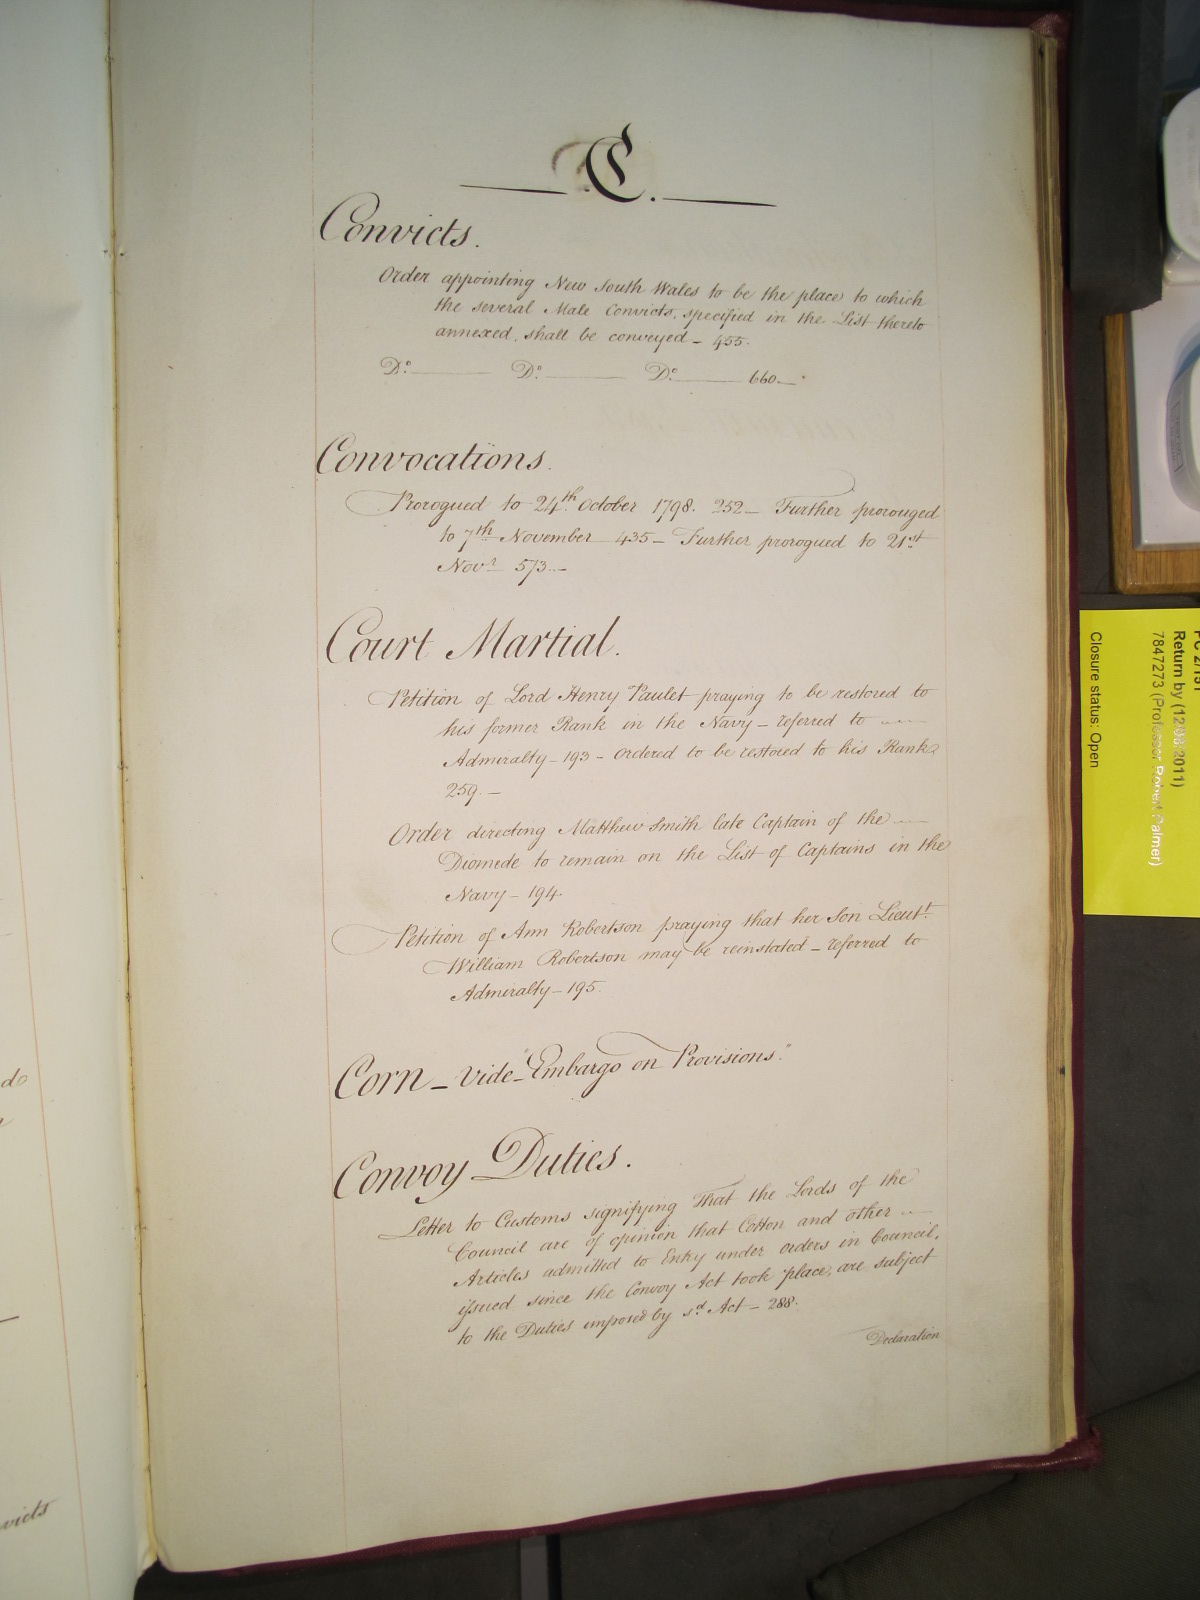 C.
Convicts.
Order appointing New South Wales to be the place to which
the several Male Convicts, specified in the List thereto
annexed, shall be conveyed – 455.
Do. Do. Do. 660 –
Convocations.
Prorogued to 24th October 1798. 252 – Further prorouged
to 7th November 435 – Further prorogued to 21st
Novr 573 –
Court Martial.
Petition of Lord Henry Paulet praying to be restored to
his former Rank in the Navy – referred to
Admiralty – 193 – Ordered to be restored to his Rank
259. –
Order directing Matthew Smith late Captain of the
Diomede to remain on the List of Captains in the
Navy – 194.
Petition of Ann Robertson praying that her Son Lieutt.
William Robertson may be reinstated – referred to
Admiralty – 195.
Corn – vide – "Embargo on Provisions."
Convoy Duties.
Letter to Customs signifying That the Lords of the
Council are of opinion that Cotton and other
Articles admitted to Entry under orders in Council,
issued since the Convoy Act took place, are subject
to the Duties imposed by sd. Act – 288.
Declaration
do
victs
Return by (12/08/2011)
7847273 (Professor Robert Palmer)
Closure status: Open